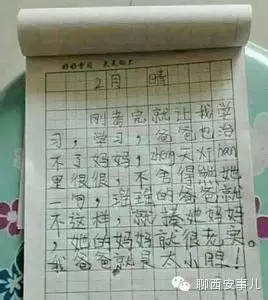 好好学习 天天向上
2月 晴
刚考完就让我学
习,学习,爸爸也治
不了妈妈,zhěng天对han
里很很,不舍得
一句,瑶瑶的爸爸就
不这样,就揍她妈妈
,她的妈妈就很老实。
我爸爸就是大小胆!
聊西安事儿